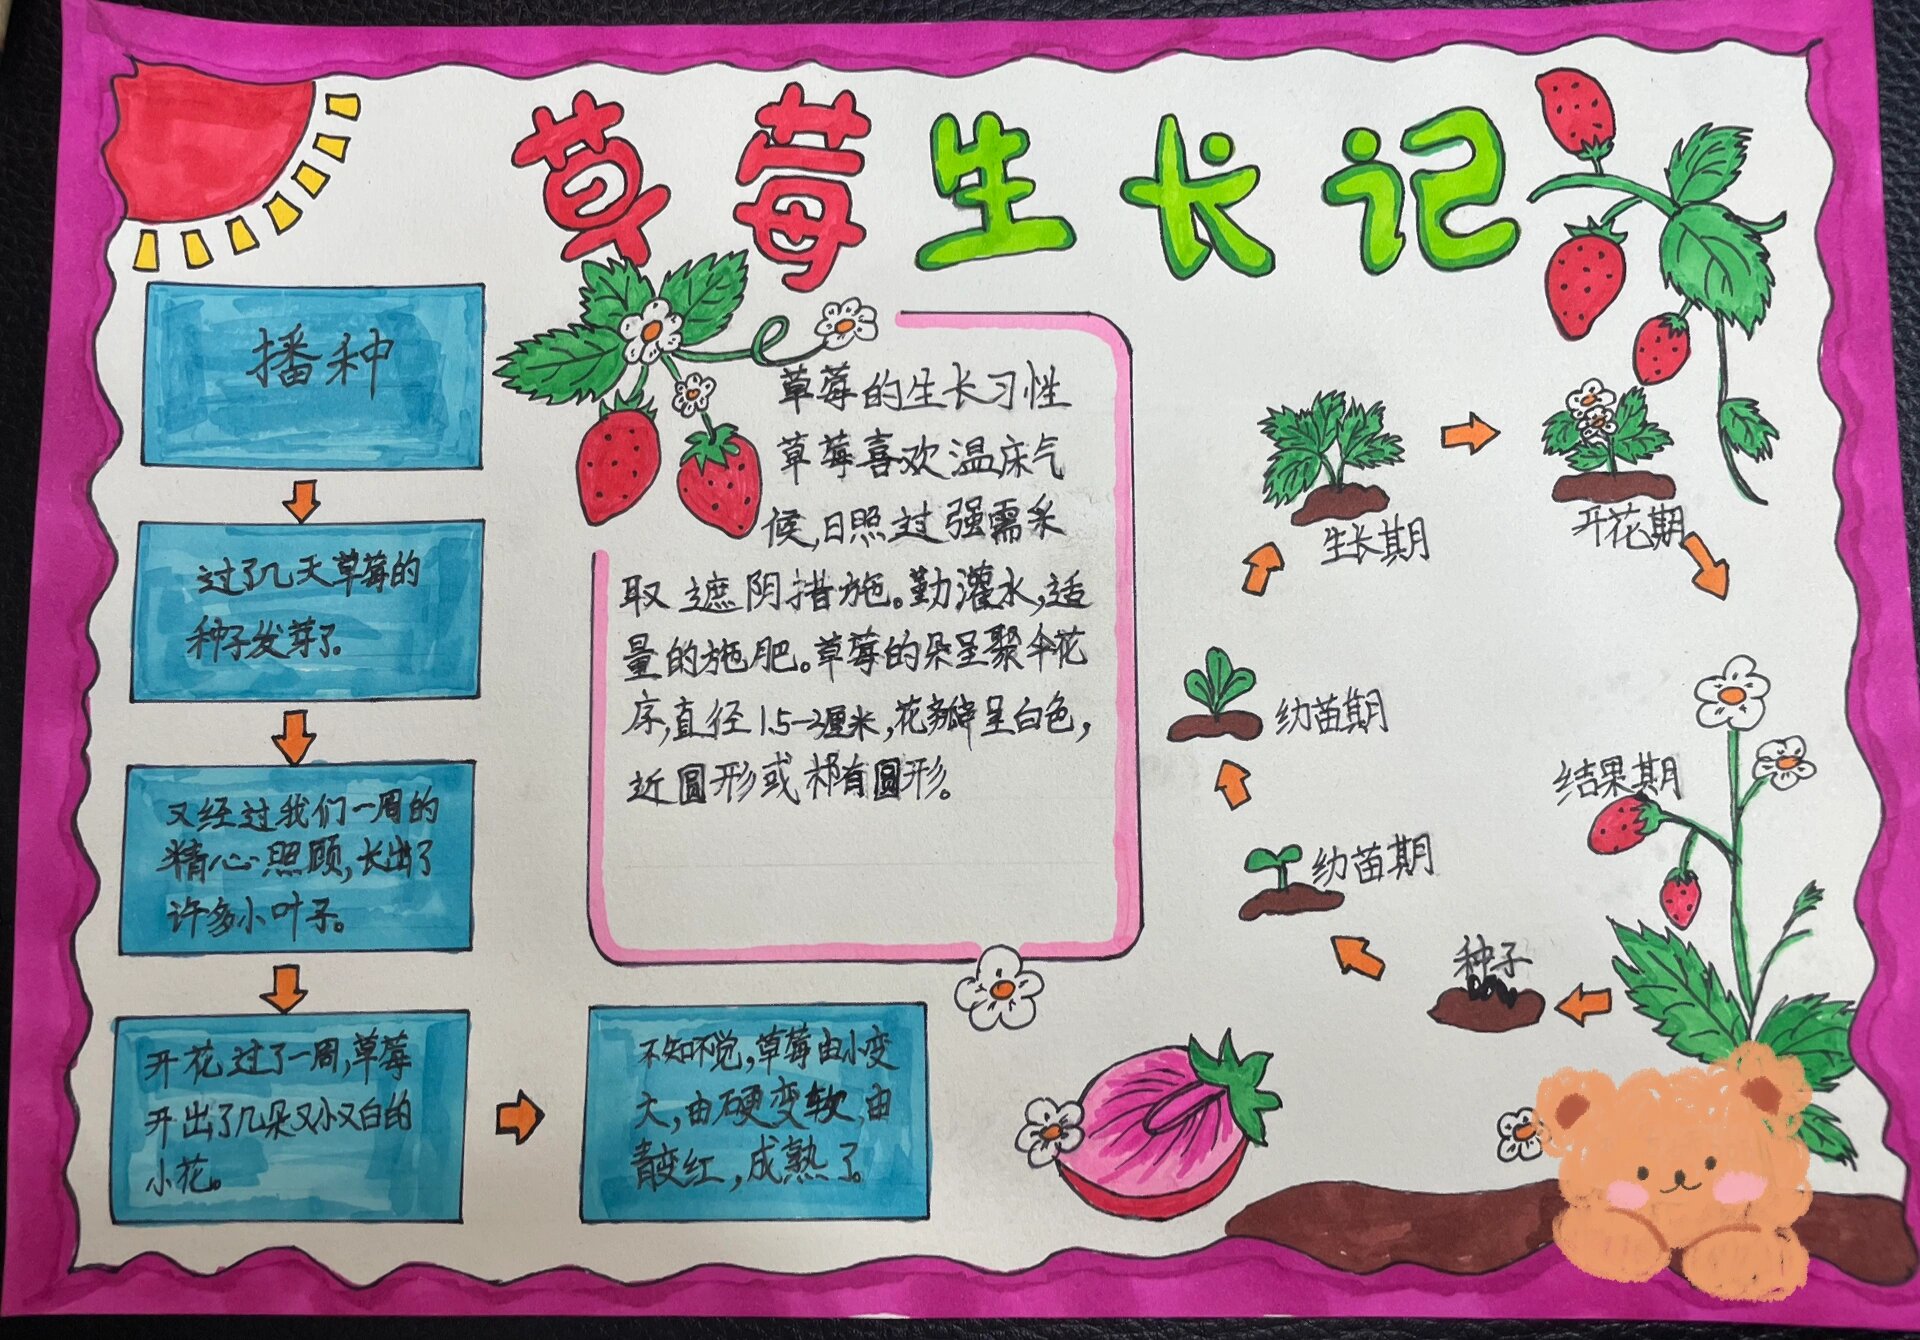 草莓生长记
播种
过了几天草莓的
种子发芽了。
又经过我们一周的
精心照顾,长出了
许多小叶子。
开花过了一周,草莓
开出了几朵又小又白的
小花。
不知不觉,草莓由小变
大,由硬变软,由
青变红,成熟了。
草莓的生长习性
草莓喜欢温床气
候,日照过强需采
取遮阴措施。勤灌水,适
量的施肥。草莓的朵呈聚伞花
序,直径1.5-2厘米,花瓣呈白色,
近圆形或 圆形。
生长期
开花期
幼苗期
结果期
幼苗期
种子